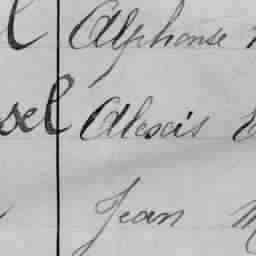 Alphonse
sel Alexis
Jean